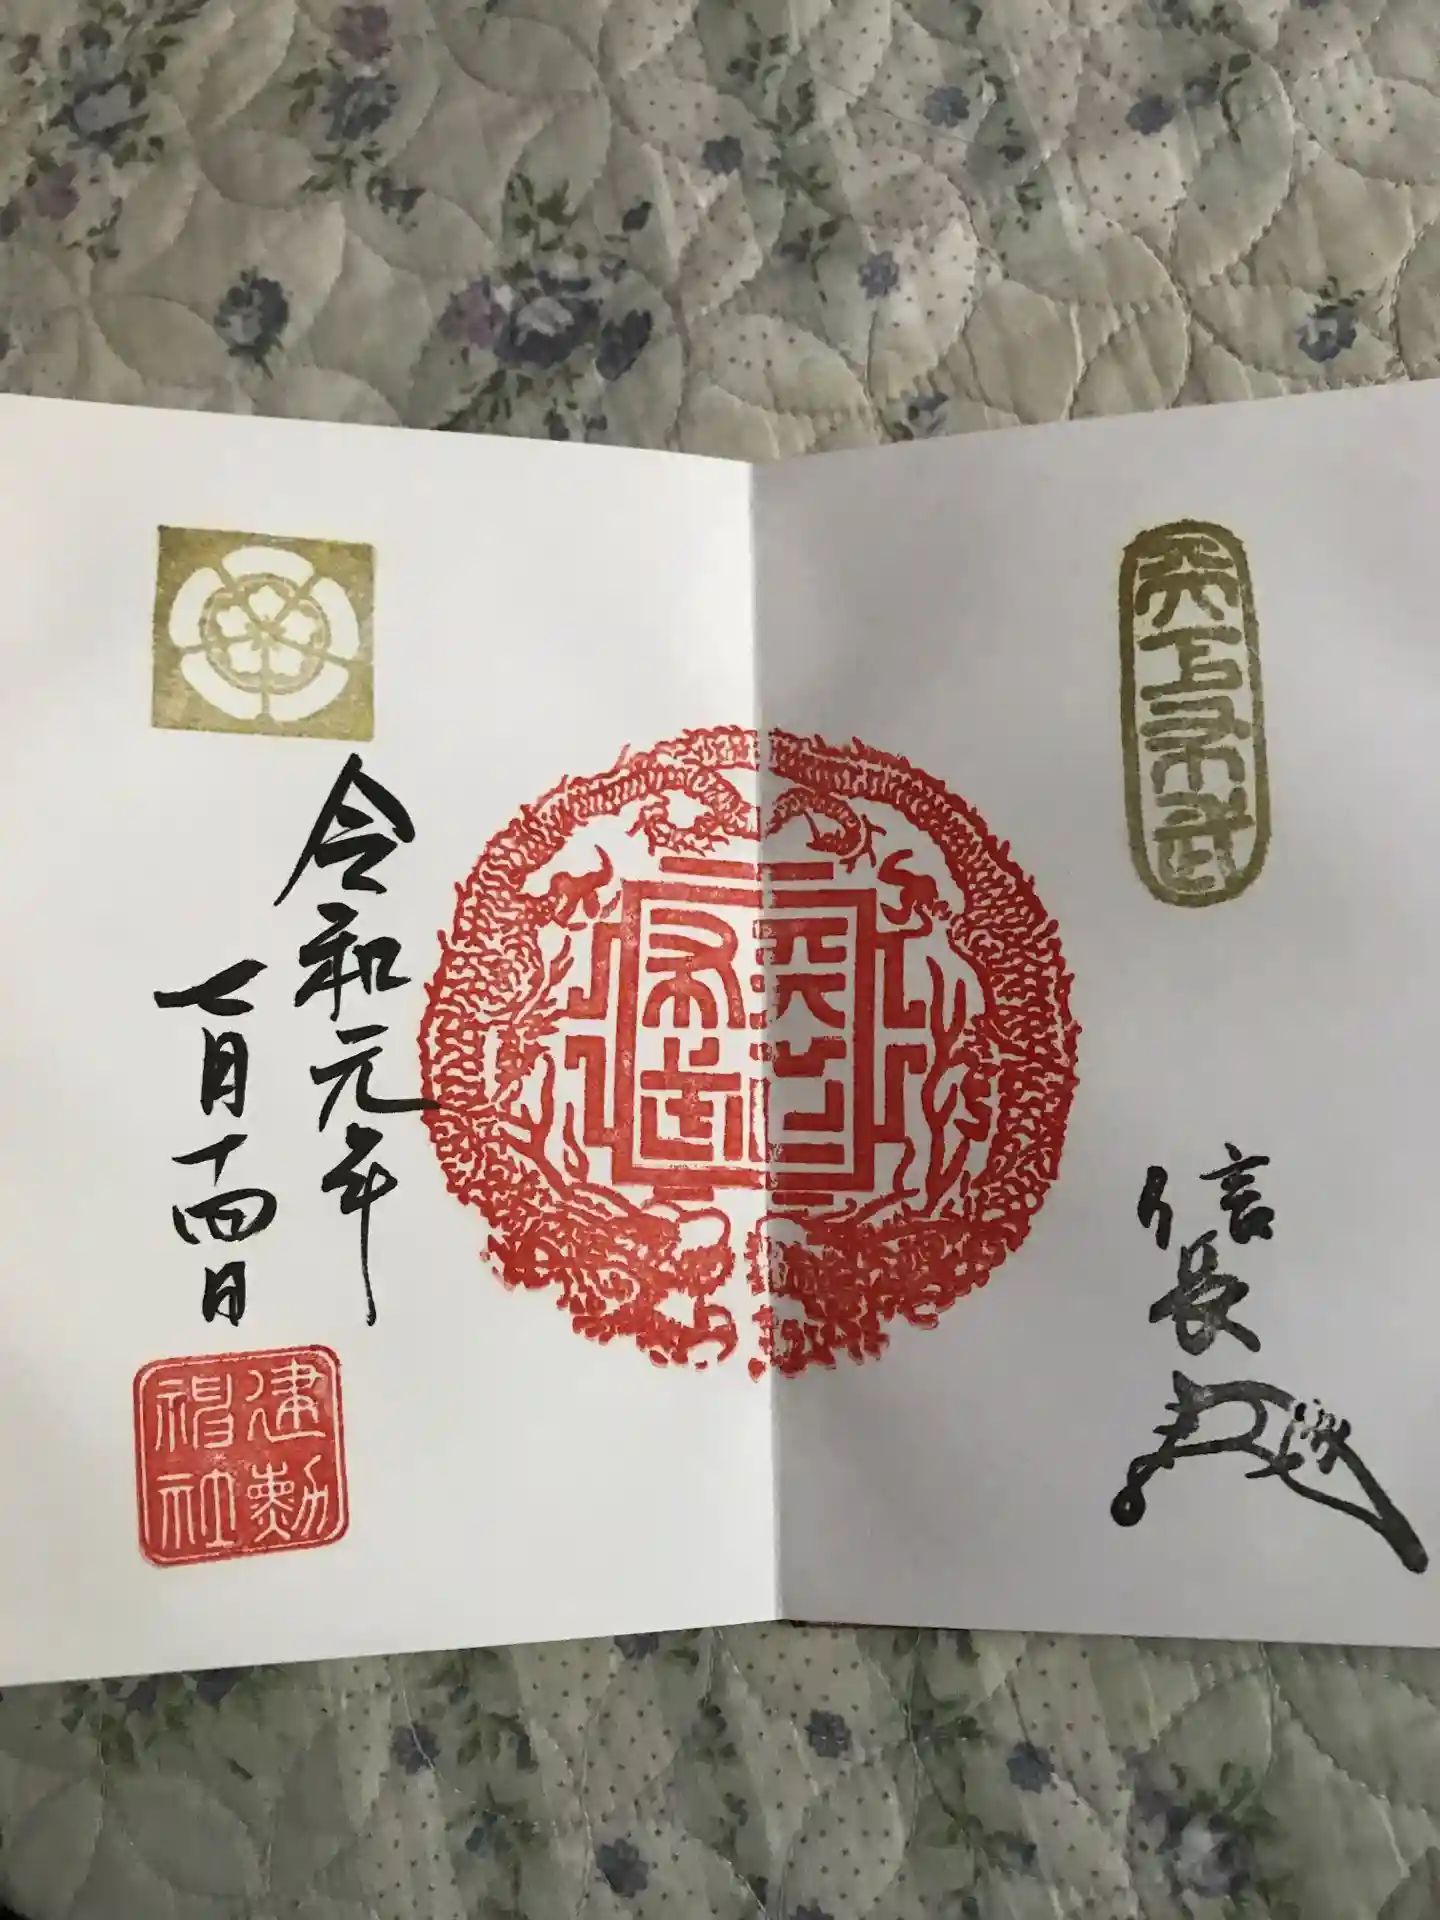 天下布武
信長
天下
布武
令和元年
七月十四日
建勲
神社